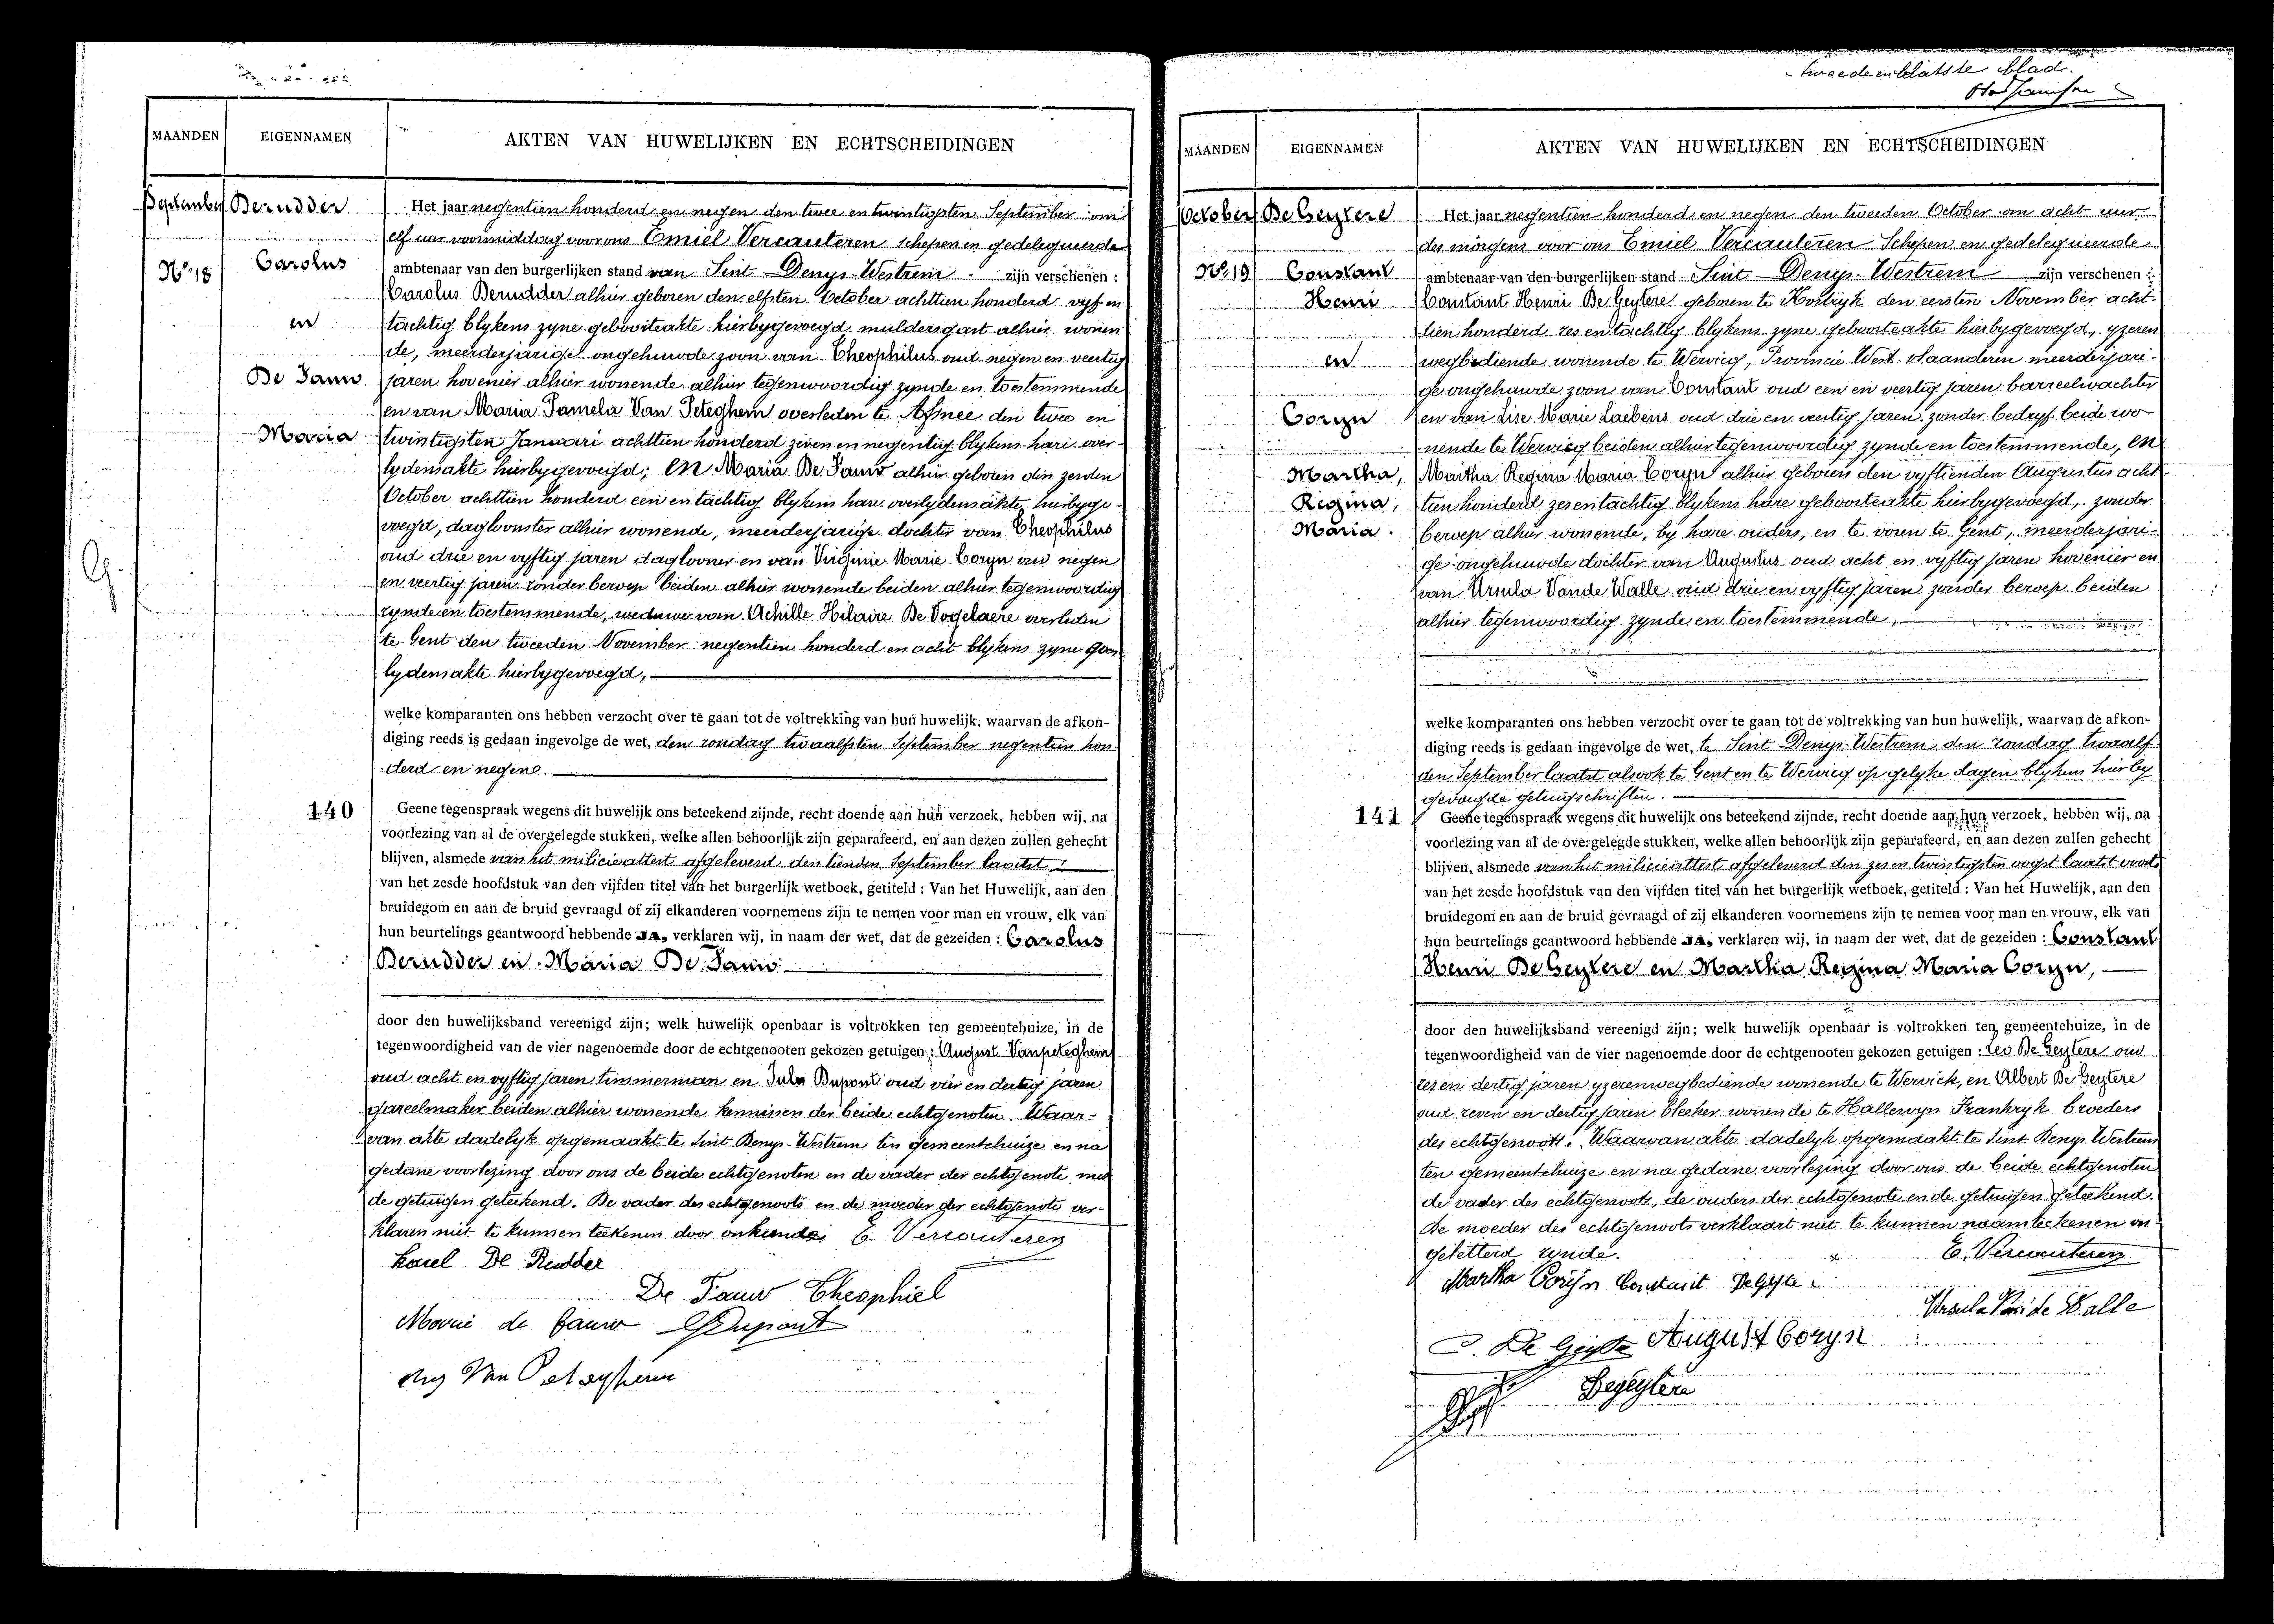 MAANDEN
EIGENNAMEN
AKTEN VAN HUWELIJKEN EN ECHTSCHEIDINGEN
September
N° 18
Derudder
Carolus
en
De Fauw
Maria
Het jaar negentien honderd en negen den twee en twintigsten September om
elf uur voormiddag voor ons Emiel Vercauteren Schepen en gedelegueerde
ambtenaar van den burgerlijken stand van Sint Denys-Westrem zijn verschenen :
Carolus Derudder alhier geboren den elfsten October achttien honderd vyf en
tachtig blykens zyne geboorteakte hierbygevoegd muldersgast alhier wonen
de, meerderjarige ongehuwde zoon van Theophilus oud negen en veertig
jaren hovenier alhier wonende alhier tegenwoordig zynde en toestemmende
en van Maria Pamela Van Peteghem overleden te Afsnee den twee en
twintigsten Januari achttien honderd zeven en negentig blykens hare over-
lydensakte hierbygevoegd; en Maria De Fauw alhier geboren den zesden
October achttien honderd een en tachtig blykens hare overlydensakte hierbyge-
voegd, dagloonster alhier wonende, meerderjarige dochter van Theophilus
oud drie en vyftig jaren daglooner en van Virginie Marie Coryn oud negen
en veertig jaren zonder beroep beiden alhier wonende beiden alhier tegenwoordig
zynde en toestemmende, weduwe van Achille Hilaire De Vogelaere overleden
te Gent den tweeden November negentien honderd en acht blykens zyne over
lydensakte hierbygevoegd,
welke komparanten ons hebben verzocht over te gaan tot de voltrekking van hun huwelijk, waarvan de afkon-
diging reeds is gedaan ingevolge de wet, den zondag twaalfsten September negentien hon-
derd en negen.
140
Geene tegenspraak wegens dit huwelijk ons beteekend zijnde, recht doende aan hun verzoek, hebben wij, na
voorlezing van al de overgelegde stukken, welke allen behoorlijk zijn geparafeerd, en aan dezen zullen gehecht
blijven, alsmede van het milicieattest afgeleverd den tienden September laatst
van het zesde hoofdstuk van den vijfden titel van het burgerlijk wetboek, getiteld : Van het Huwelijk, aan den
bruidegom en aan de bruid gevraagd of zij elkanderen voornemens zijn te nemen voor man en vrouw, elk van
hun beurtelings geantwoord hebbende JA, verklaren wij, in naam der wet, dat de gezeiden : Carolus
Derudder en Maria De Fauw
door den huwelijksband vereenigd zijn; welk huwelijk openbaar is voltrokken ten gemeentehuize, in de
tegenwoordigheid van de vier nagenoemde door de echtgenooten gekozen getuigen : August Vanpeteghem
oud acht en vyftig jaren timmerman en Jules Dupont oud vier en dertig jaren
gareelmaker beiden alhier wonende kennissen der beide echtgenoten Waar-
van akte dadelyk opgemaakt te Sint Denys-Westrem ten gemeentehuize en na
gedane voorlezing door ons de beide echtgenoten en de vader der echtgenote met
de getuigen geteekend. De vader des echtgenoots en de moeder der echtgenote ver-
klaren niet te kunnen teekenen door onkunde E. Vercauteren
Karel De Rudder
De Fauw Theophiel
Marie de fauw Dupont
Aug Van Peteghem
tweede en laatste blad.
MAANDEN
EIGENNAMEN
AKTEN VAN HUWELIJKEN EN ECHTSCHEIDINGEN
October
N° 19
De Geytere
Constant
Henri
en
Coryn
Martha,
Regina,
Maria.
Het jaar negentien honderd en negen den tweeden October om acht uur
des morgens voor ons Emiel Vercauteren Schepen en gedelegueerde
ambtenaar van den burgerlijken stand Sint Denys-Westrem zijn verschenen :
Constant Henri De Geytere geboren te Kortryk den eersten November acht-
tien honderd zes en tachtig blykens zyne geboorteakte hierbygevoegd, yzeren
wegbediende wonende te Wervicq, Provincie West-vlaanderen meerderjari-
ge ongehuwde zoon van Constant oud een en veertig jaren barreelwachter
en van Lise Marie Laebens oud drie en veertig jaren zonder bedryf beide wo
nende te Wervicq beiden alhier tegenwoordig zynde en toestemmende, en
Martha Regina Maria Coryn alhier geboren den vyftienden Augustus acht-
tien honderd zes en tachtig blykens hare geboorteakte hierbygevoegd, zonder
beroep alhier wonende, by hare ouders, en te voren te Gent, meerderjari-
ge ongehuwde dochter van Augustus oud acht en vyftig jaren hovenier en
van Ursula Vande Walle oud drie en vyftig jaren zonder beroep beiden
alhier tegenwoordig zynde en toestemmende,
welke komparanten ons hebben verzocht over te gaan tot de voltrekking van hun huwelijk, waarvan de afkon-
diging reeds is gedaan ingevolge de wet, te Sint Denys-Westrem den zondag twaalf
den September laatst alsook te Gent en te Wervicq op gelyke dagen blykens hierby
gevoegde getuigschriften.
141
Geene tegenspraak wegens dit huwelijk ons beteekend zijnde, recht doende aan hun verzoek, hebben wij, na
voorlezing van al de overgelegde stukken, welke allen behoorlijk zijn geparafeerd, en aan dezen zullen gehecht
blijven, alsmede van het milicieattest afgeleverd den zes en twintigsten oogst laatst
van het zesde hoofdstuk van den vijfden titel van het burgerlijk wetboek, getiteld : Van het Huwelijk, aan den
bruidegom en aan de bruid gevraagd of zij elkanderen voornemens zijn te nemen voor man en vrouw, elk van
hun beurtelings geantwoord hebbende JA, verklaren wij, in naam der wet, dat de gezeiden : Constant
Henri De Geytere en Martha Regina Maria Coryn,
door den huwelijksband vereenigd zijn; welk huwelijk openbaar is voltrokken ten gemeentehuize, in de
tegenwoordigheid van de vier nagenoemde door de echtgenooten gekozen getuigen : Leo De Geytere oud
zes en dertig jaren yzerenwegbediende wonende te Wervick, en Albert De Geytere
oud zeven en dertig jaren bleeker wonende te Hallewyn Frankryk broeders
des echtgenoots. Waarvan akte dadelyk opgemaakt te Sint Denys Westrem
ten gemeentehuize en na gedane voorlezing door ons de beide echtgenoten
de vader des echtgenoots, de ouders der echtgenote en de getuigen geteekend.
De moeder des echtgenoots verklaart niet te kunnen naamteekenen on-
geletterd zynde. E. Vercauteren
Martha Coryn Constant DeGeyter
Ursula Van de Walle
C. De Geytere August Coryn
Degeytere